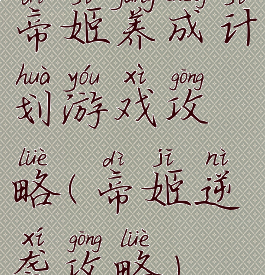 帝姬养成计
huà yóu xì gōng
划游戏攻
lüè dì jī nì
略(帝姬逆
xí gōng lüè
袭攻略)